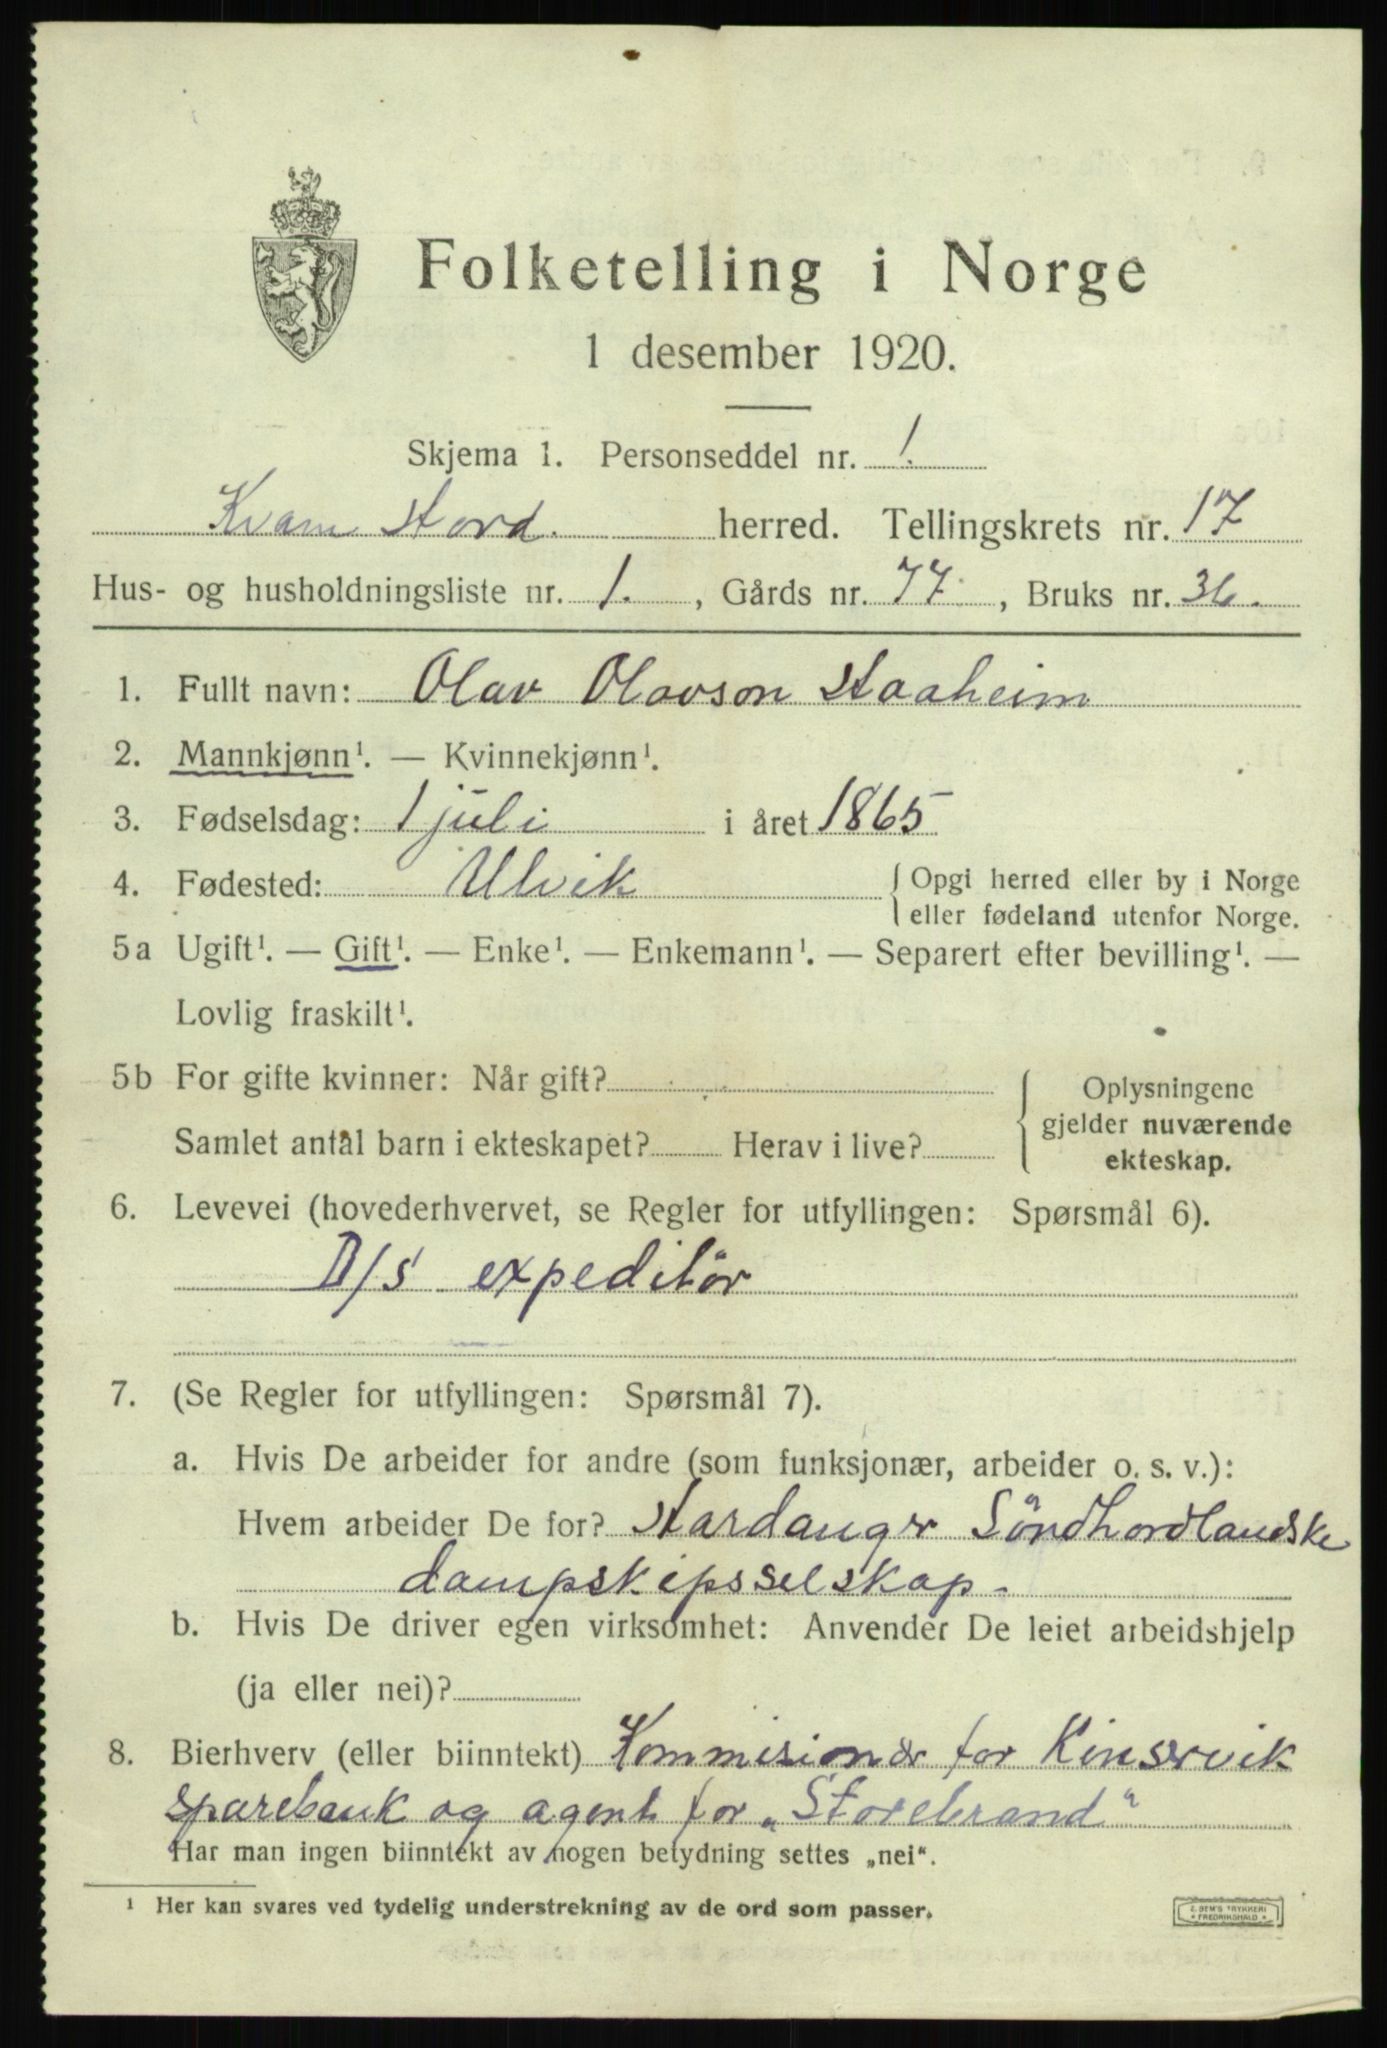 Folketelling i Norge
1 desember 1920.
Skjema 1. Personseddel nr. 1.
Kvam Hord. herred. Tellingskrets nr. 17
Hus- og husholdningsliste nr. 1. , Gårds nr. 77. , Bruks nr. 36.
1. Fullt navn: Olav Olavson Haaheim
2. Mannkjønn¹. — Kvinnekjønn¹.
3. Fødselsdag: 1 juli i året 1865
4. Fødested: Ulvik { Opgi herred eller by i Norge
eller fødeland utenfor Norge.
5a Ugift¹. — Gift¹. — Enke¹. — Enkemann¹. — Separert efter bevilling¹. —
Lovlig fraskilt¹.
5b For gifte kvinner: Når gift? { Oplysningene
gjelder nuværende
Samlet antal barn i ekteskapet? Herav i live?
ekteskap.
6. Levevei (hovederhvervet, se Regler for utfyllingen: Spørsmål 6).
D/s expeditör
7. (Se Regler for utfyllingen: Spørsmål 7).
a. Hvis De arbeider for andre (som funksjonær, arbeider o. s. v.):
Hvem arbeider De for? Hardanger Söndhordlandske
dampskipsselskap.
b. Hvis De driver egen virksomhet: Anvender De leiet arbeidshjelp
(ja eller nei)?
8. Bierhverv (eller biinntekt) Kommisionær for Kinservik
sparebank og agent for „Storebrand"
Har man ingen biinntekt av nogen betydning settes „nei".
¹ Her kan svares ved tydelig understrekning av de ord som passer.
E. SEM'S TRYKKERI
FREDRIKSHALD